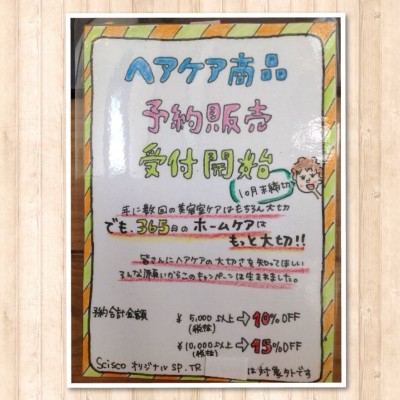 ヘアケア商品
予約販売
受付開始
10月末締切
年に数回の美容室ケアはもちろん大切
でも、365日のホームケアは
もっと大切!!
皆さんにヘアケアの大切さを知ってほしい
そんな願いからこのキャンペーンは生まれました。
予約合計金額
¥5,000以上→10%OFF
(税抜)
¥10,000以上→15%OFF
(税抜)
Scisco オリジナル SP.TR は対象外です